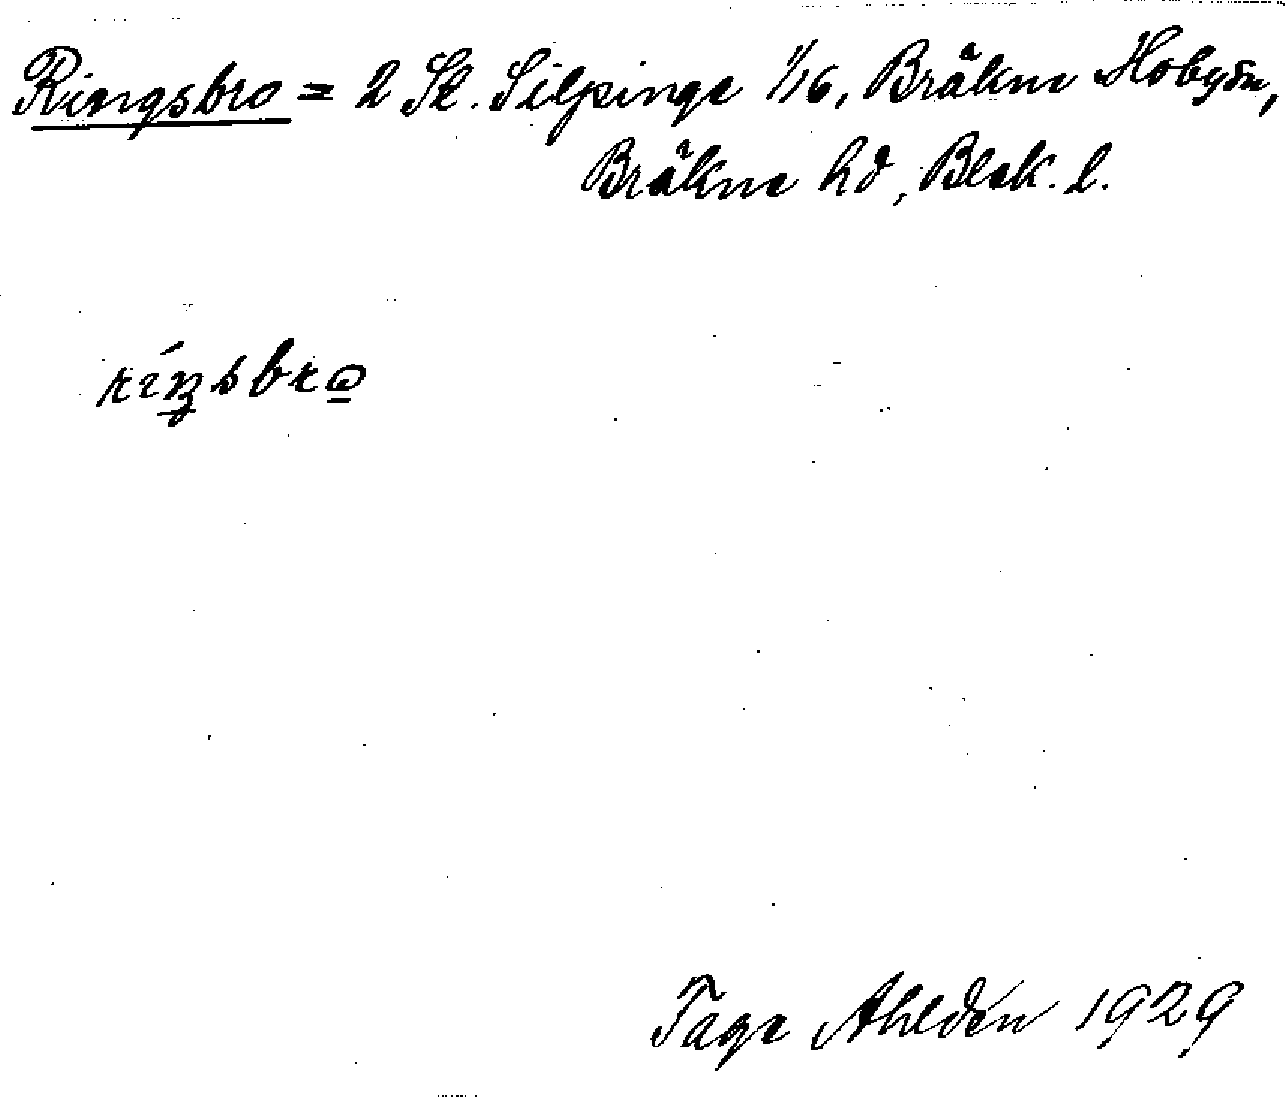 Ringsbro = 2 St. Silpinge 1/16, Bräkne Hobysn,
Bräkne hd, Blek. l.
ríŋsbro
Tage Ahldén 1929